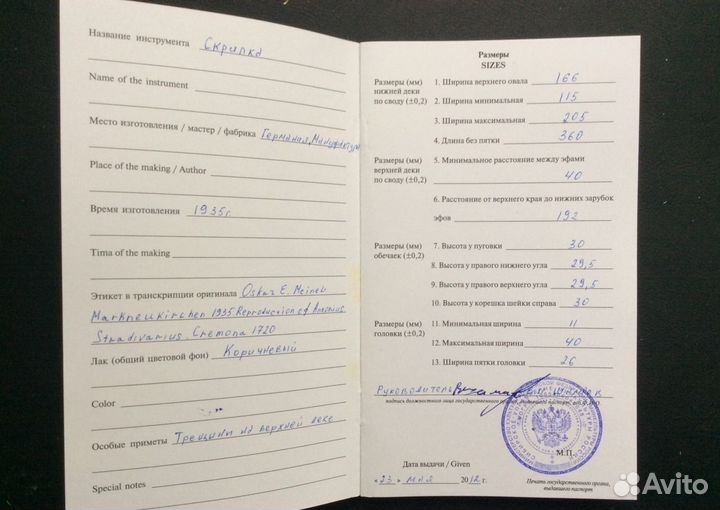 Название инструмента Скрипка
Name of the instrument
Место изготовления / мастер / фабрика Германия, Мануфактура
Place of the making / Author
Время изготовления 1935г.
Tima of the making
Этикет в транскрипции оригинала Oskar E. Meinel
Markneukirchen 1935 Reproduction of Antonius
Stradivarius. Cremona 1720
Лак (общий цветовой фон) Коричневый
Color
Особые приметы Трещины на верхней деке
Special notes
Размеры
SIZES
Размеры (мм)
нижней деки
по своду (±0,2)
1. Ширина верхнего овала 166
2. Ширина минимальная 115
3. Ширина максимальная 205
4. Длина без пятки 360
Размеры (мм)
верхней деки
по своду (±0,2)
5. Минимальное расстояние между эфами
40
6. Расстояние от верхнего края до нижних зарубок
эфов 192
Размеры (мм)
обечаек (±0,2)
7. Высота у пуговки 30
8. Высота у правого нижнего угла 29,5
9. Высота у правого верхнего угла 29,5
10. Высота у корешка шейки справа 30
Размеры (мм)
головки (±0,2)
11. Минимальная ширина 11
12. Максимальная ширина 40
13. Ширина пятки головки 26
Руководитель
подпись должностного лица государственного органа, выдавшего паспорт
М.П.
Дата выдачи / Given
«23» мая 2012г.
Печать государственного органа,
выдавшего паспорт
Avito